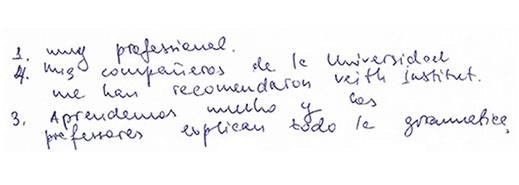 1. muy professional.
4. mis compañeros de la Universidad
me han recomendaron veith institut.
3. Aprendemos mucho y los
professores explican todo la grammatica,